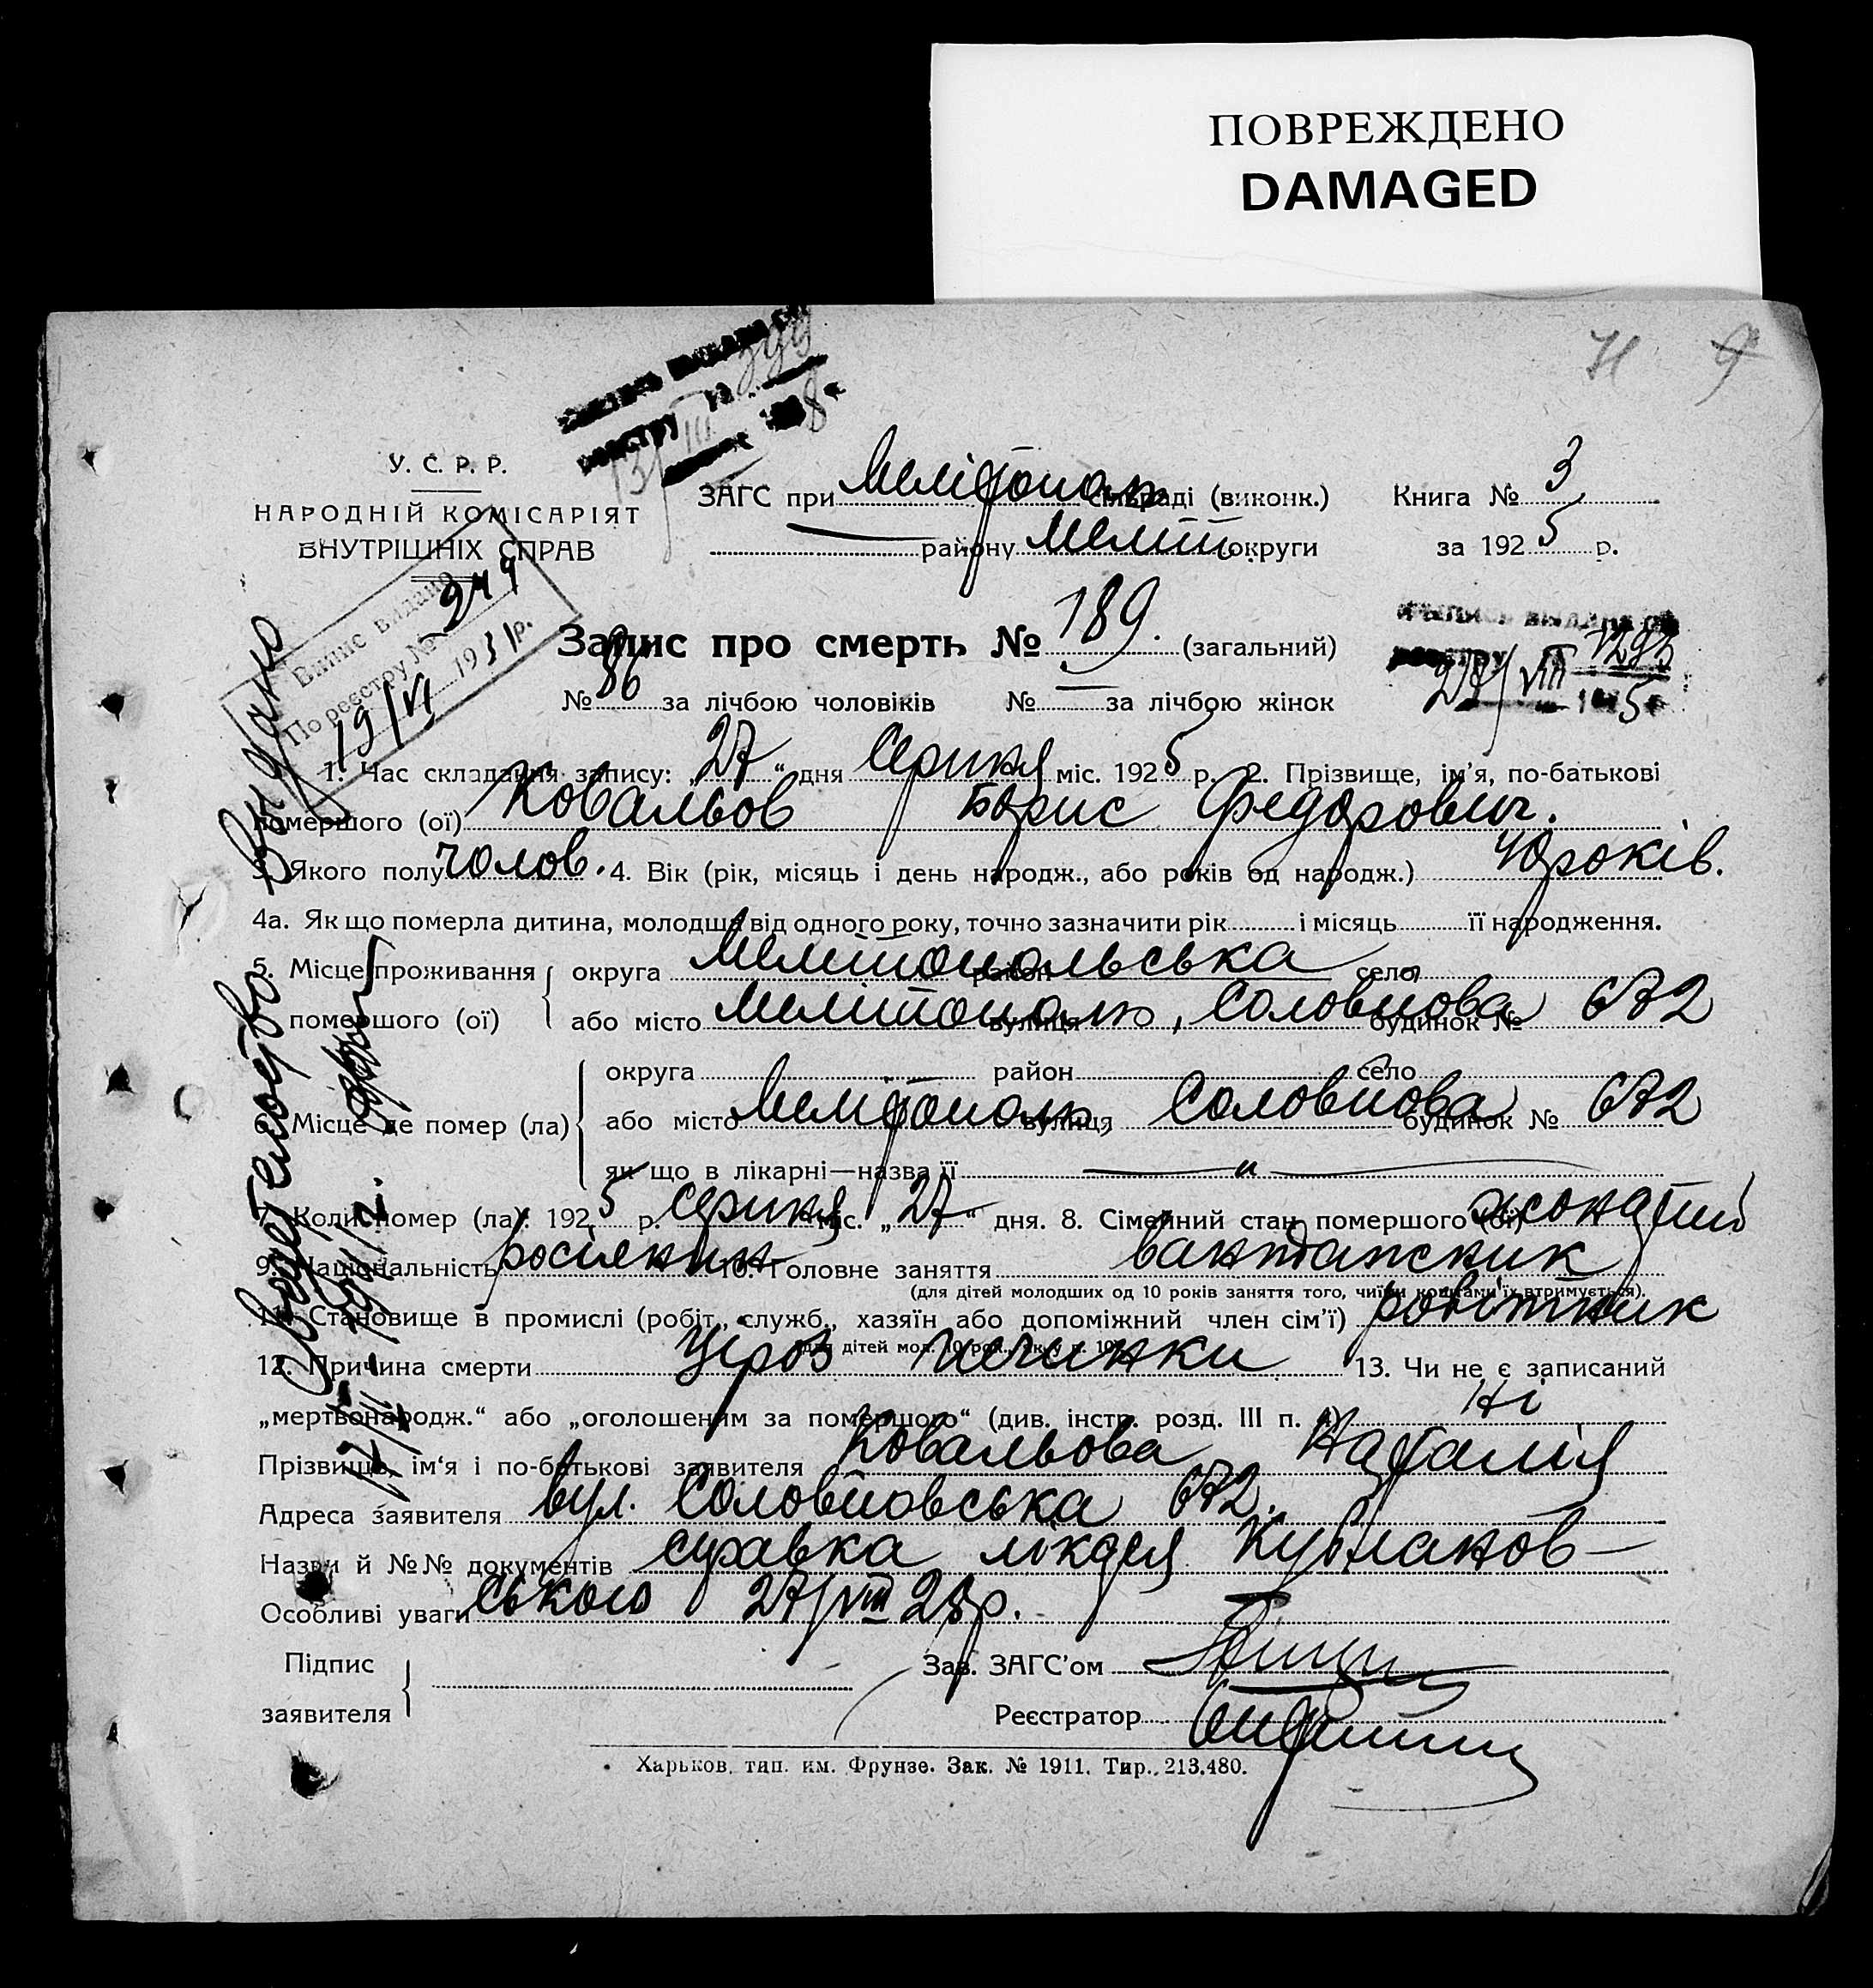 ПОВРЕЖДЕНО
DAMAGED
У. С. Р. Р.
НАРОДНІЙ КОМІСАРІЯТ
ВНУТРІШНІХ СПРАВ
ЗАГС при Мелітополь сільраді (виконк.) Книга № 3
району Меліт округи за 1925 р.
Випис видано
По реєстру № 349
19/VI 1931 р.
Запис про смерть № 189. (загальний)
№ 86 за лічбою чоловіків № — за лічбою жінок
1. Час складання запису: 27 " дня Серпня міс. 1925 р. 2. Прізвище, ім'я, по-батькові
помершого (ої) Ковальов Борис Федорович.
3. Якого полу чолов. 4. Вік (рік, місяць і день народж., або років од народж.) 40 років.
4а. Як що померла дитина, молодша від одного року, точно зазначити рік і місяць її народження.
5. Місце проживання помершого (ої) округа Мелітопольська район село
або місто Мелітополь, вулиця Соловйова будинок № 672
Місце де помер (ла) округа район село
або місто Мелітополь, вулиця Соловйова будинок № 672
як що в лікарні—назва її — " —
Коли помер (ла): 1925 р. серпня міс. „27" дня. 8. Сімейний стан помершого (ої) жонатий
9. Національність росіянин 10. Головне заняття вантажник
(для дітей молодших од 10 років заняття того, чиїми коштами їх втримується).
11. Становище в промислі (робіт., служб., хазяїн або допоміжний член сім'ї) робітник
для дітей мол. 10 рок., як у п. 10
12. Причина смерти Цероз печинки 13. Чи не є записаний
„мертвонародж." або „оголошеним за помершого" (див. інстр. розд. III п. 4) Ні
Прізвище, ім'я і по-батькові заявителя Ковальова Наталія
Адреса заявителя вул. Соловйовська 672.
Назви й №№ документів справка лікаря
Особливі уваги ського 27/VIII 25 р.
Підпис
заявителя
Зав. ЗАГС'ом
Реєстратор
Харьков, тип. им. Фрунзе. Зак. № 1911. Тир. 213.480.
Видано